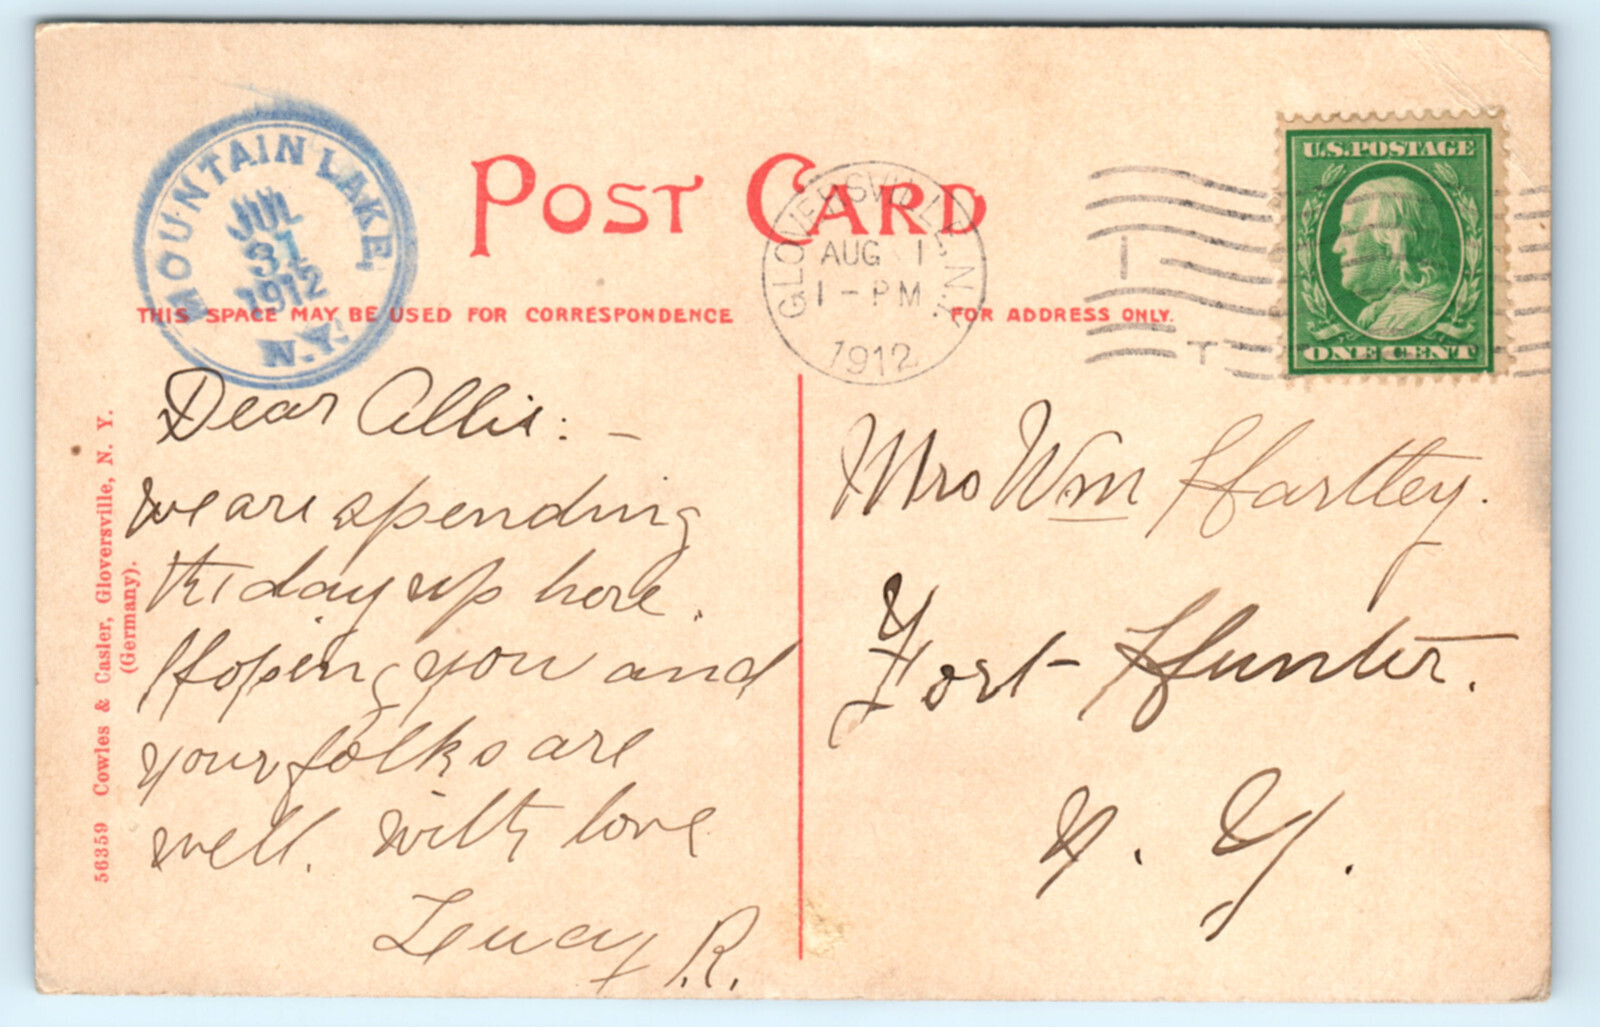 MOUNTAIN LAKE,
JUL
31
1912
N.Y.
POST CARD
GLOVERSVILLE, N.Y.
AUG 1
1 - PM
1912
U.S. POSTAGE
ONE CENT
THIS SPACE MAY BE USED FOR CORRESPONDENCE
FOR ADDRESS ONLY.
56359 Cowles & Casler, Gloversville, N. Y.
(Germany).
Dear Allie: -
we are spending
the day up here.
Hoping you and
your folks are
well. with love
Lucy R.
Mrs Wm Hartley.
Fort Hunter.
N. Y.